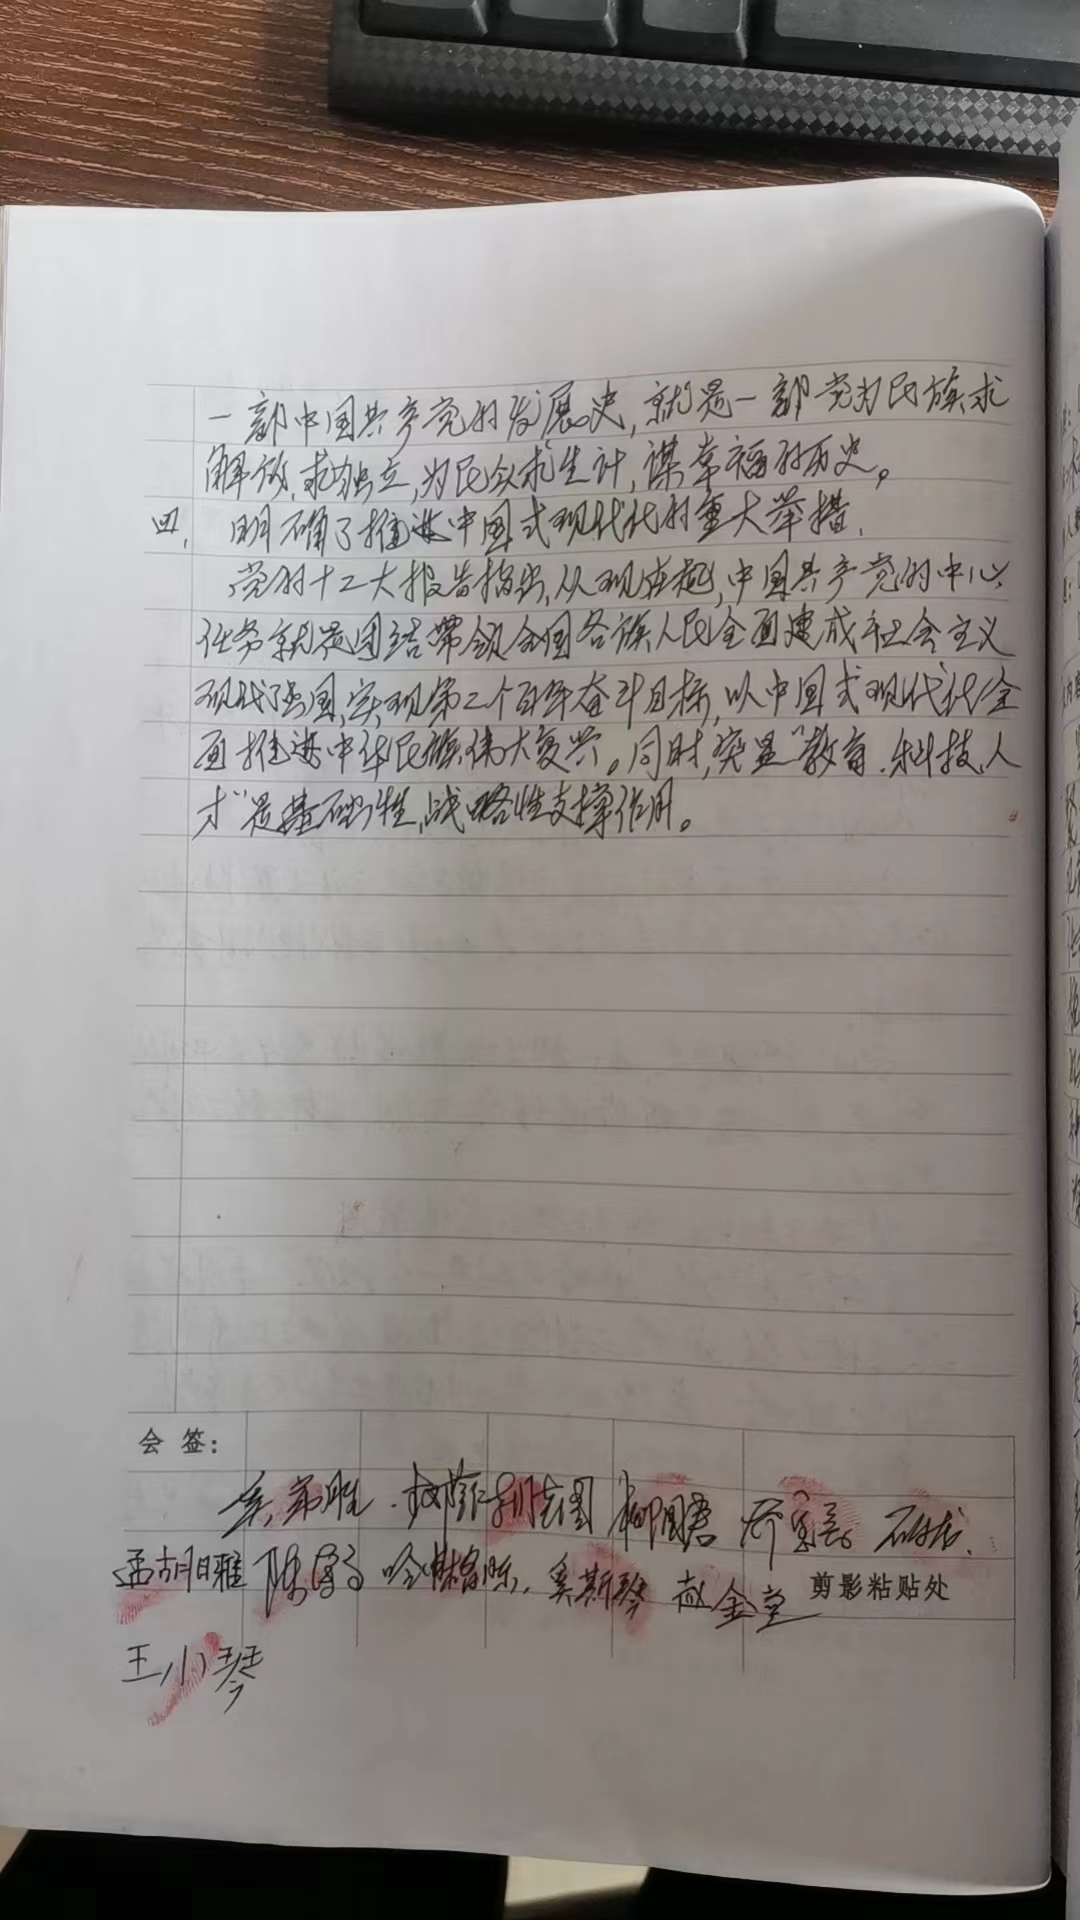 一部中国共产党的发展史,就是一部党为民族求
解放,求独立,为民众求生计,谋幸福的历史。
四、明确了推进中国式现代化的重大举措,
党的十二大报告指出,从现在起,中国共产党的中心
任务就是团结带领全国各族人民全面建成社会主义
现代强国,实现第二个百年奋斗目标,以中国式现代化全
面推进中华民族伟大复兴。同时,突显“教育、科技、人
才”是基础性,战略性支撑作用。
会 签:
孟胡日雅 奚斯琴 赵金宝 剪影粘贴处
王小琴